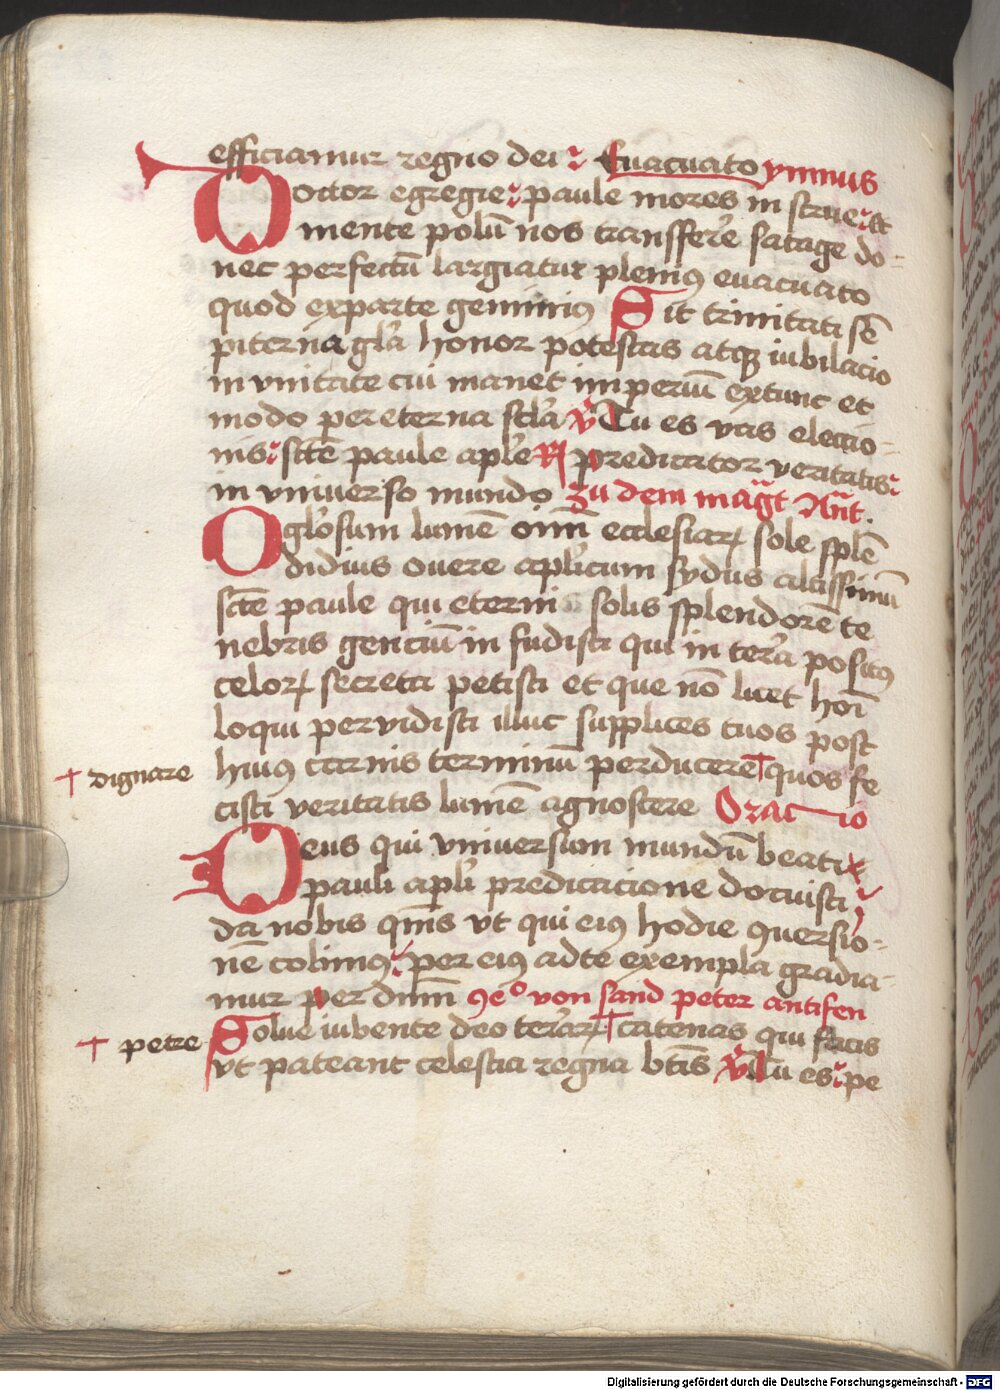 efficiamur regno dei Euacuato ymnus
Doctor egregie paule mores in strue et
mente polū nos transffere satage do-
nec perfectū largiatur plenius euacuato
quod exparte gerimus Sit trinitati sē
piterna gl̄a honor potestas atqꝫ iubilacio
in vnitate cui manet imperiū extunc et
modo per eterna scl̄a ℣ Tu es vas electio-
nis scē paule apl̄e ℟ predicator veritatis
in vniuerso mundo zu dem mag̃t Ant.
O gl̄osum lumē oīm ecclesiarꝝ sole splē
didius ouere apl̄icum sydus altissimū
scē paule qui eterni solis splendorē te
nebris genciū in fudisti qui in terra positus
celorꝝ secreta petisti et que nō licet hoī
loqui peruidisti illuc supplices tuos post
huius carnis terminū perducere † quos fe
† dignare
cisti veritatis lumē agnoscere Oracio
Deus qui vniuersum mundū beati
pauli apl̄i predicacione docuisti
da nobis qm̄s vt qui eius hodie ꝯuersio-
nē colimus per eius ad te exempla gradia-
mur per dnm̄ ꝯeº von sand peter antifen
† petre
Solue iubente deo terrarꝝ † catenas qui facis
vt pateant celestia regna bt̄is ℣ Tu es pe
Digitalisierung gefördert durch die Deutsche Forschungsgemeinschaft - DFG